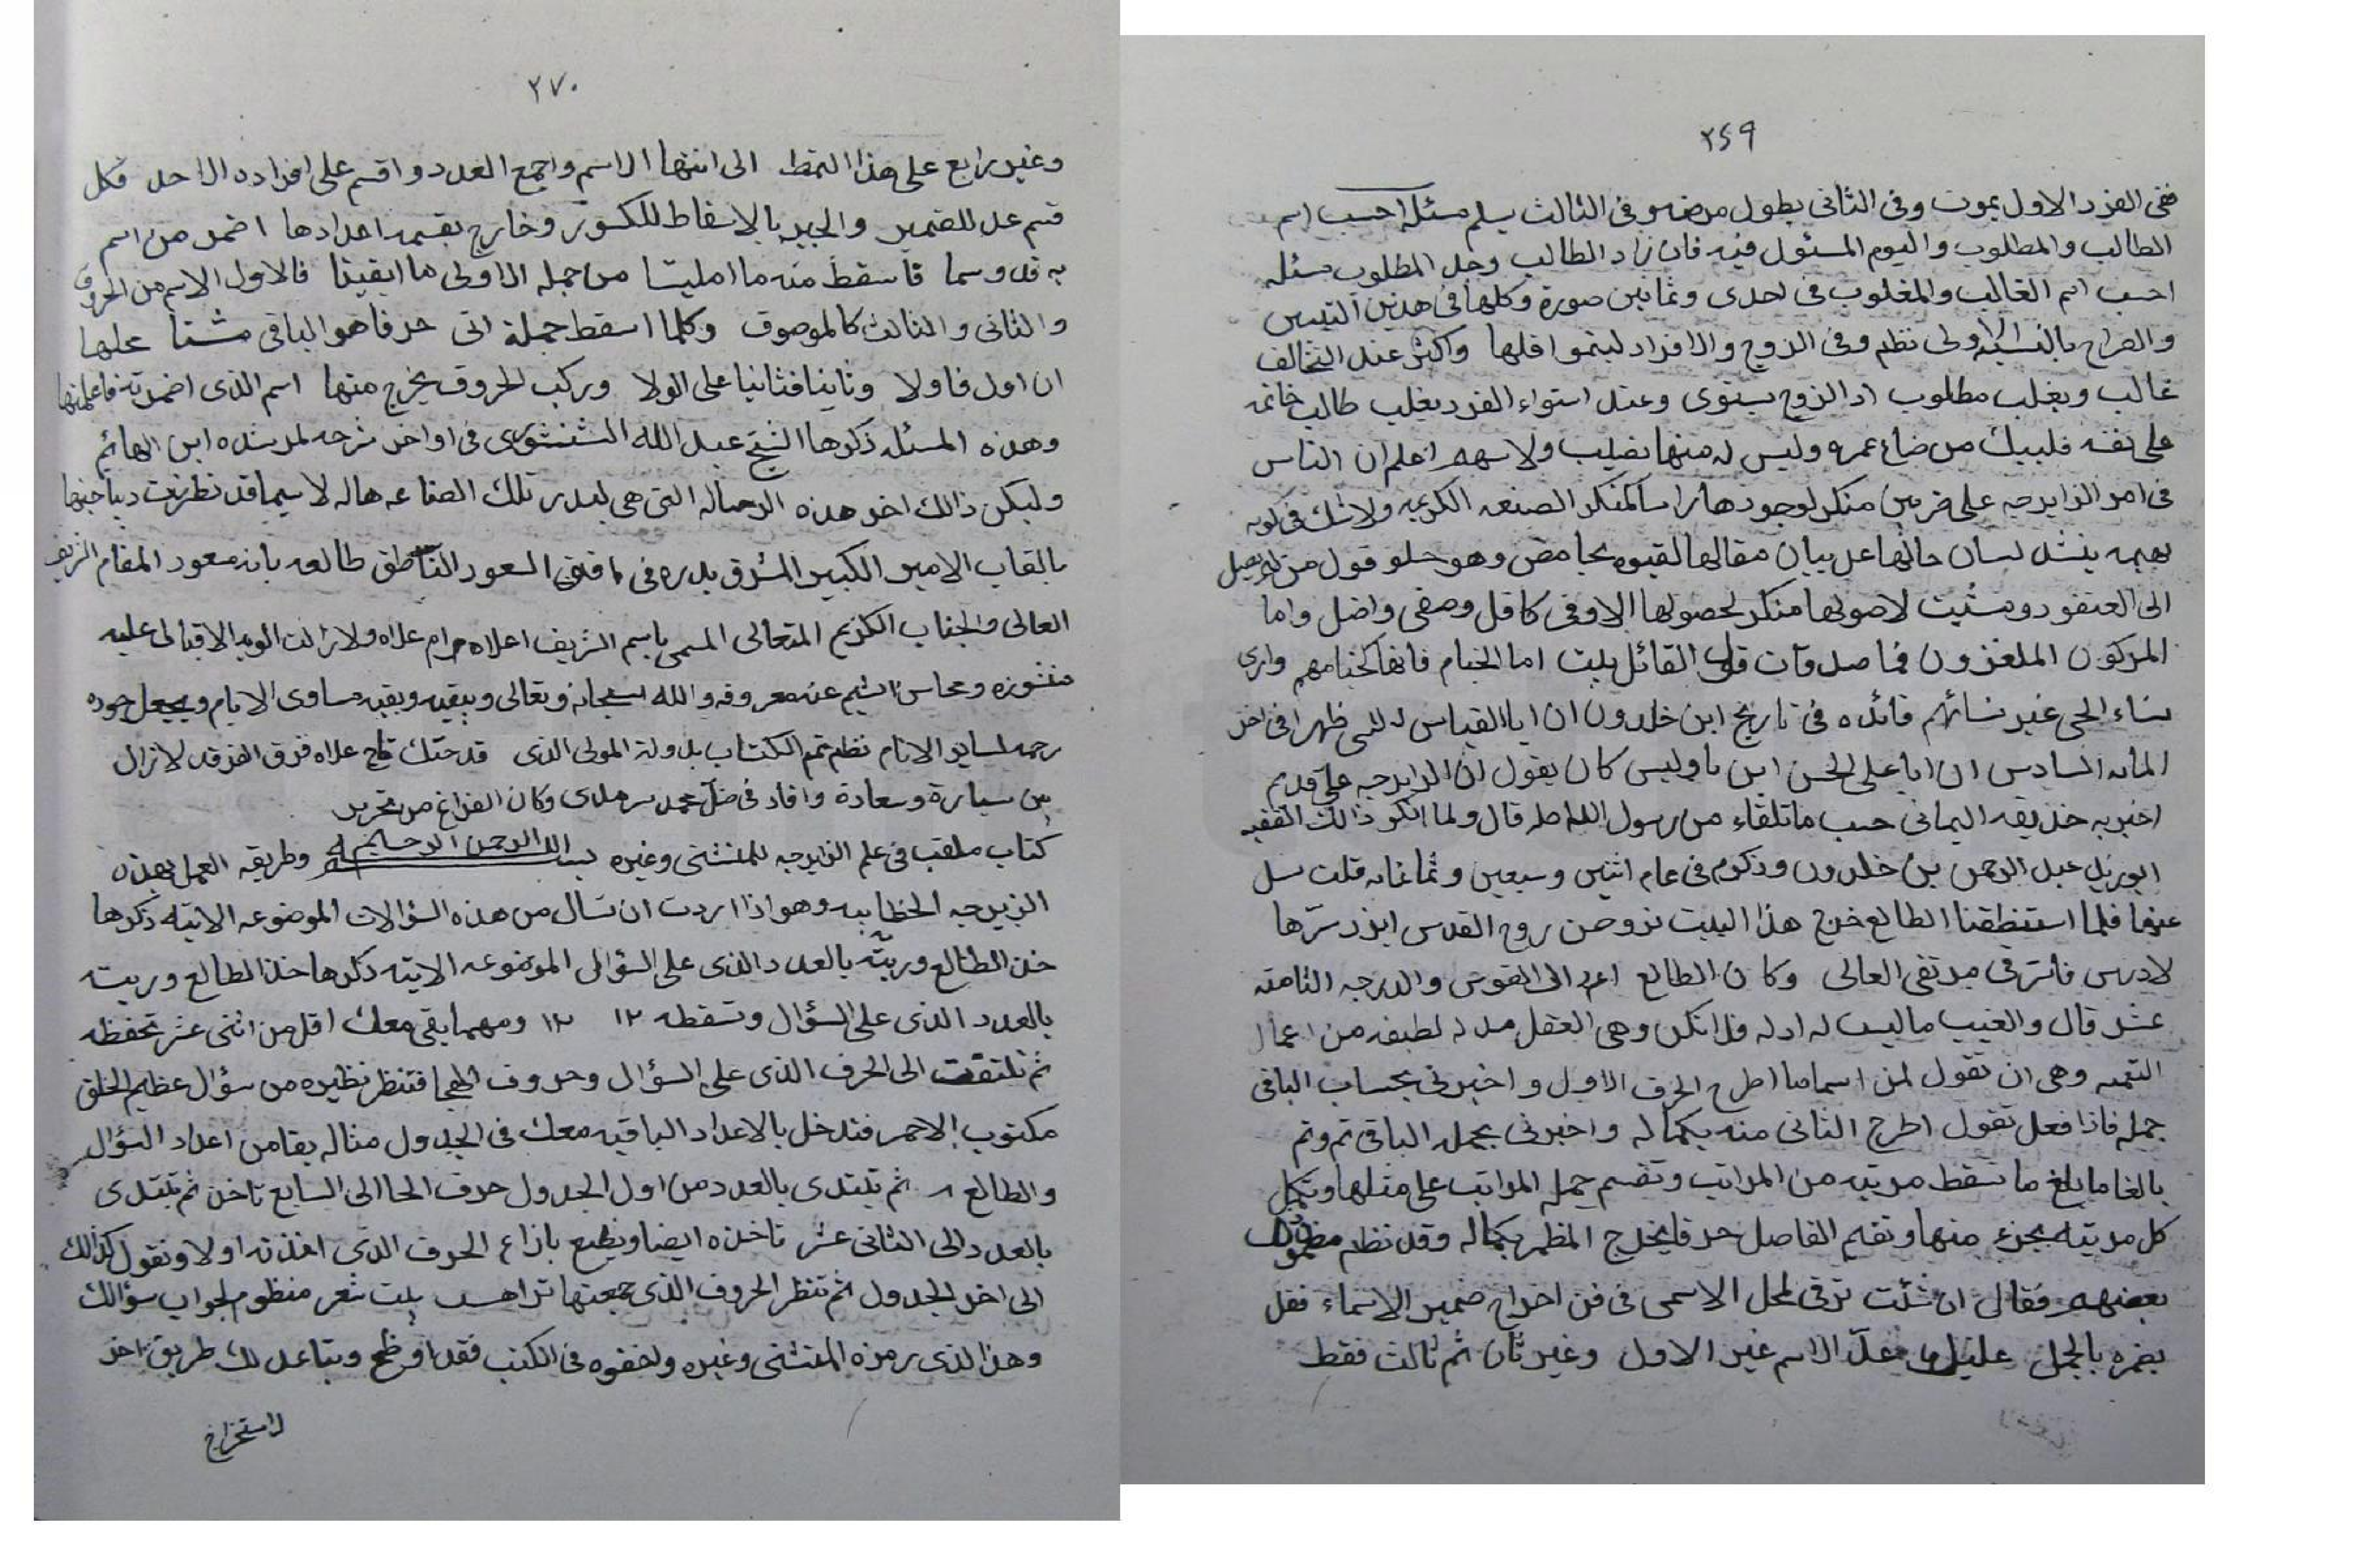 ٢٦٩
ففى الفرد الاول يموت وفى الثانى يطول مرضه وفى الثالث يسلم مسئله احسب اسم
الطالب والمطلوب واليوم المسئول فيه فان زاد الطالب وجل المطلوب مسئله
احسب اسم الغالب والمغلوب فى احدى وثمانين صورة وكلها فى هدين البيتين
والصراح اولى نظم وفى الزوج والافراد لينموا قلها واكثر عند التخالف
غالب ويغلب مطلوب اذ الزوج يستوى وعند استواء الفرد يغلب طالب خاتمه
على نفسه فليبك من ضاع عمره وليس له منها نصيب ولا سهم اعلم ان الناس
فى امر الزايرجه على ضربين منكر لوجودها راسا كمنكر الصنعه الكريمه ولا شك فى كونه
بهيمه ينشد لسان حالها عل بيان مقالها وهو حلو قول من لم يصل
الى العنقود ومثبت لاصولها منكر لحصولها الاوفى كاقل وصفى واضل واما
المدركون الملغزون فما صدوآت قول القائل بيت اما الخيام فانها كخيامهم وارى
نساء الحى غير نسائهم فائده فى تاريخ ابن خلدون ان ابا القياس ظهرا فى اخر
المائه السادس ان ابا على الحسن ابن باوليس كان يقول ان الزايرجه على قديم
اخبر به حذيفه اليمانى حسب ما تلقاء من رسول الله صله قال ولما انكر ذالك الفقيه
ابوزيد عبد الرحمن بن خلدون وذكرم فى عام اثنين وسبعين وثمانمائه قلت سل
عنها فلما استنطقنا الطالع خرج هذا البيت تروحن روح القدس ابرز سرها
لادريس فاترقى مرتقى العالى وكان الطالع القوس والدرجه الثامنه
عشر قال والغيب ما ليست له ادله فلا انكر وهى العقل لطيفه من اعمال
وهى ان تقول لمن اسما ما اطرح الحرف الاول واخبرنى بحساب الباقى
جمله فاذا فعل تقول اطرح الثانى منه بكماله واخبرنى بجمله الباقى ثم وثم
بالغا ما بلغ ما تسقط مرتبه من المراتب وتقسم جمله المراتب على مثلها وتكمل
كل مرتبه بجزء منها وتقم الفاصل حرفا يخرج المظمر بكماله وقد نظم
بعضهم فقال ان شئت ترقى لمحل الاسمى فى فن اخراج ضمير الاسماء فقل
يضمره بالجمل عدّ الاسم غير الاول وغير ثان ثم ثالث فقط
٢٧٠
وغير رابع على هذا النمط الى انتها الاسم واجمع العدد واقسم على افراده الا احد فكل
قسم عدل للضمير والجبر بالاسقاط للكسور وخارج بقسمه اعدادها اضمر من اسم
به قد وسما فاسقط منه ما امليتا من جمله الاولى ما ابقيتا فالاول الاسم من الحروف
والثانى والثالث كالموصوف وكلما اسقط جملة اتى حرفا هو الباقى مشتا عليها
ان اول فاولا وثانيا فثانيا على الولا وركب الحروف يخرج منها اسم الذى اضمرته فاعلمنها
وهذه المسئله ذكرها الشيخ عبد الله الشنشورى فى اواخر شرحه لمرشده ابن الهائم
وليكن ذالك اخر هذه الرساله التى هى لبدر تلك الصناعه هاله لا سيما قد نطرزت ديباجتها
بالقاب الامير الكبير المشرق بدره فى افق السعود الناطق طالعه بانه مسعود المقام الشريف
العالى والجناب الكريم المتعالى المسمى باسم الشريف اعلاه دام علاه ولا زالت الويه الاقبال عليه
منشوره ومحاسن الشيم عنه معروفه والله سبحانه وتعالى ويبقيه ويقيه مساوى الايام ويجعل جوده
رحمه لساير الانام نظم تم الكتاب بدولة المولى الذى قد حنك تاج علاه فرق الفرقد لا زال
بين سيارة وسعادة وافاد فى ضل مجد سرمدى وكان الفراغ من تحرير
كتاب ملقب فى علم الزايرجه للمنشتى وغيره بسم الله الرحمن الرحيم وطريقه العمل بهذه
الزيرجه الخطابيه وهو اذا اردت ان تسال من هذه السؤالات الموضوعه الاتيه ذكرها
خذ الطالع وربته بالعدد الذى على السؤال الموضوعه الاتيه ذكرها خذ الطالع وربيته
بالعدد الذى على السؤال وتسقطه ١٢ ١٢ ومهما بقى معك اقل من اثنى عشر تحفظه
ثم تلتفت الى الحرف الذى على السؤال وحروف الهجا فتنظر نظيره من سؤال عظيم الخلق
مكتوب بالاحمر فتدخل بالاعداد الباقيه معك فى الجدول مثاله بقا من اعداد السؤال
والطالع ٨ ثم تبتدى بالعدد من اول الجدول حرف الحا الى السابع تاخذ ثم تبتدى
بالعدد الى الثانى عشر تاخذه ايضا وتضع بازاء الحرف الذى اخذته اولا وتقول كذالك
الى اخر الجدول ثم تنظر الحروف الذى جمعتها تراهــ بيت شعر منظوم لجواب سؤالك
وهذا الذى رمزه المنشتى وغيره واخفوه فى الكتب فقد اوضح ويتاعد لك طريق اخر
لاستخراج